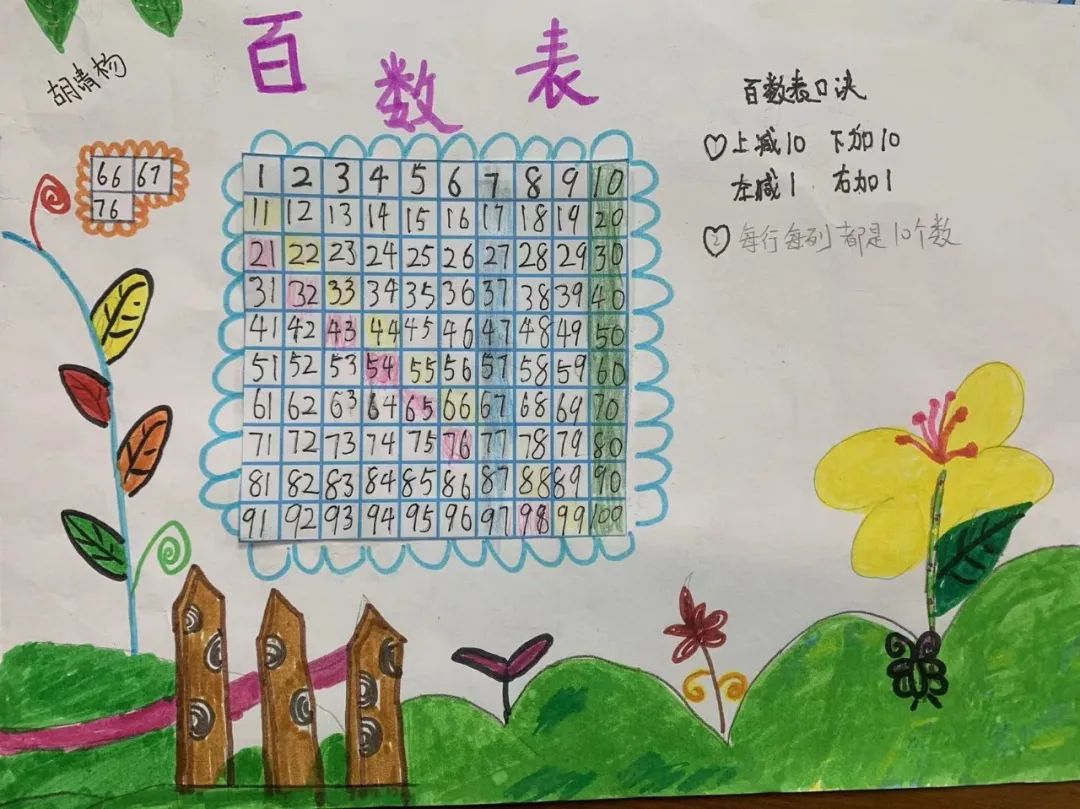 百数表
胡清杨
百数表口诀
①上减10 下加10
左减1 右加1
②每行每列都是10个数
66 67
76
1 2 3 4 5 6 7 8 9 10
11 12 13 14 15 16 17 18 19 20
21 22 23 24 25 26 27 28 29 30
31 32 33 34 35 36 37 38 39 40
41 42 43 44 45 46 47 48 49 50
51 52 53 54 55 56 57 58 59 60
61 62 63 64 65 66 67 68 69 70
71 72 73 74 75 76 77 78 79 80
81 82 83 84 85 86 87 88 89 90
91 92 93 94 95 96 97 98 99 100